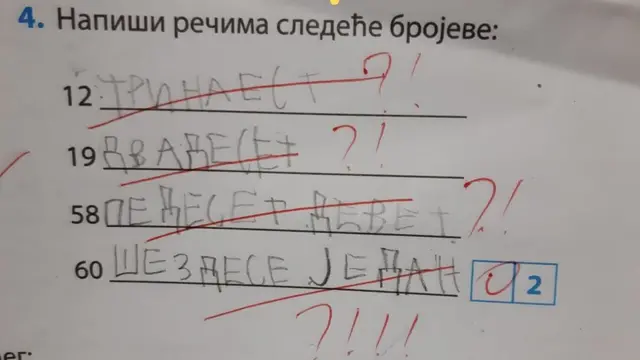 4. Напиши речима следеће бројеве:
12 ТРИНАЕСТ ?!
19 ДВАДЕСЕТ ?!
58 ПЕДЕСЕТ ДЕВЕТ ?!
60 ШЕЗДЕСЕ ЈЕДАН 0 2
?!!!